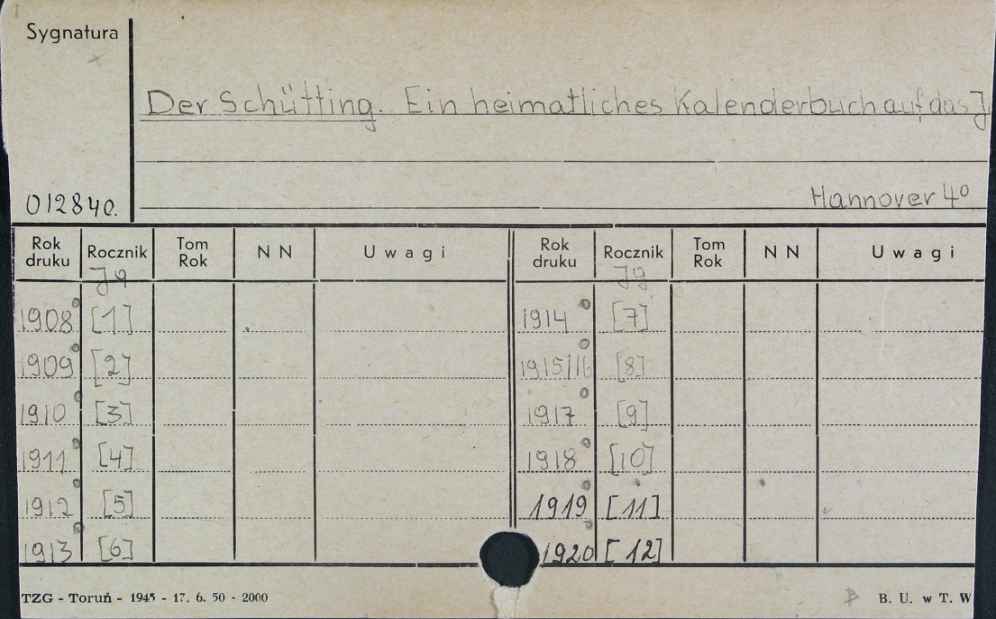 Sygnatura
Der Schütting. Ein heimatliches Kalenderbuch auf das J
012840.
Hannover 4°
Rok druku Rocznik Tom Rok NN Uwagi Rok druku Rocznik Tom Rok NN Uwagi
Jg Jg
1908° [1] 1914° [7]
1909° [2] 1915/16° [8]
1910° [3] 1917° [9]
1911° [4] 1918° [10]
1912° [5] 1919° [11]
1913° [6] 1920° [12]
TZG - Toruń - 1945 - 17. 6. 50 - 2000 B. U. w T. W